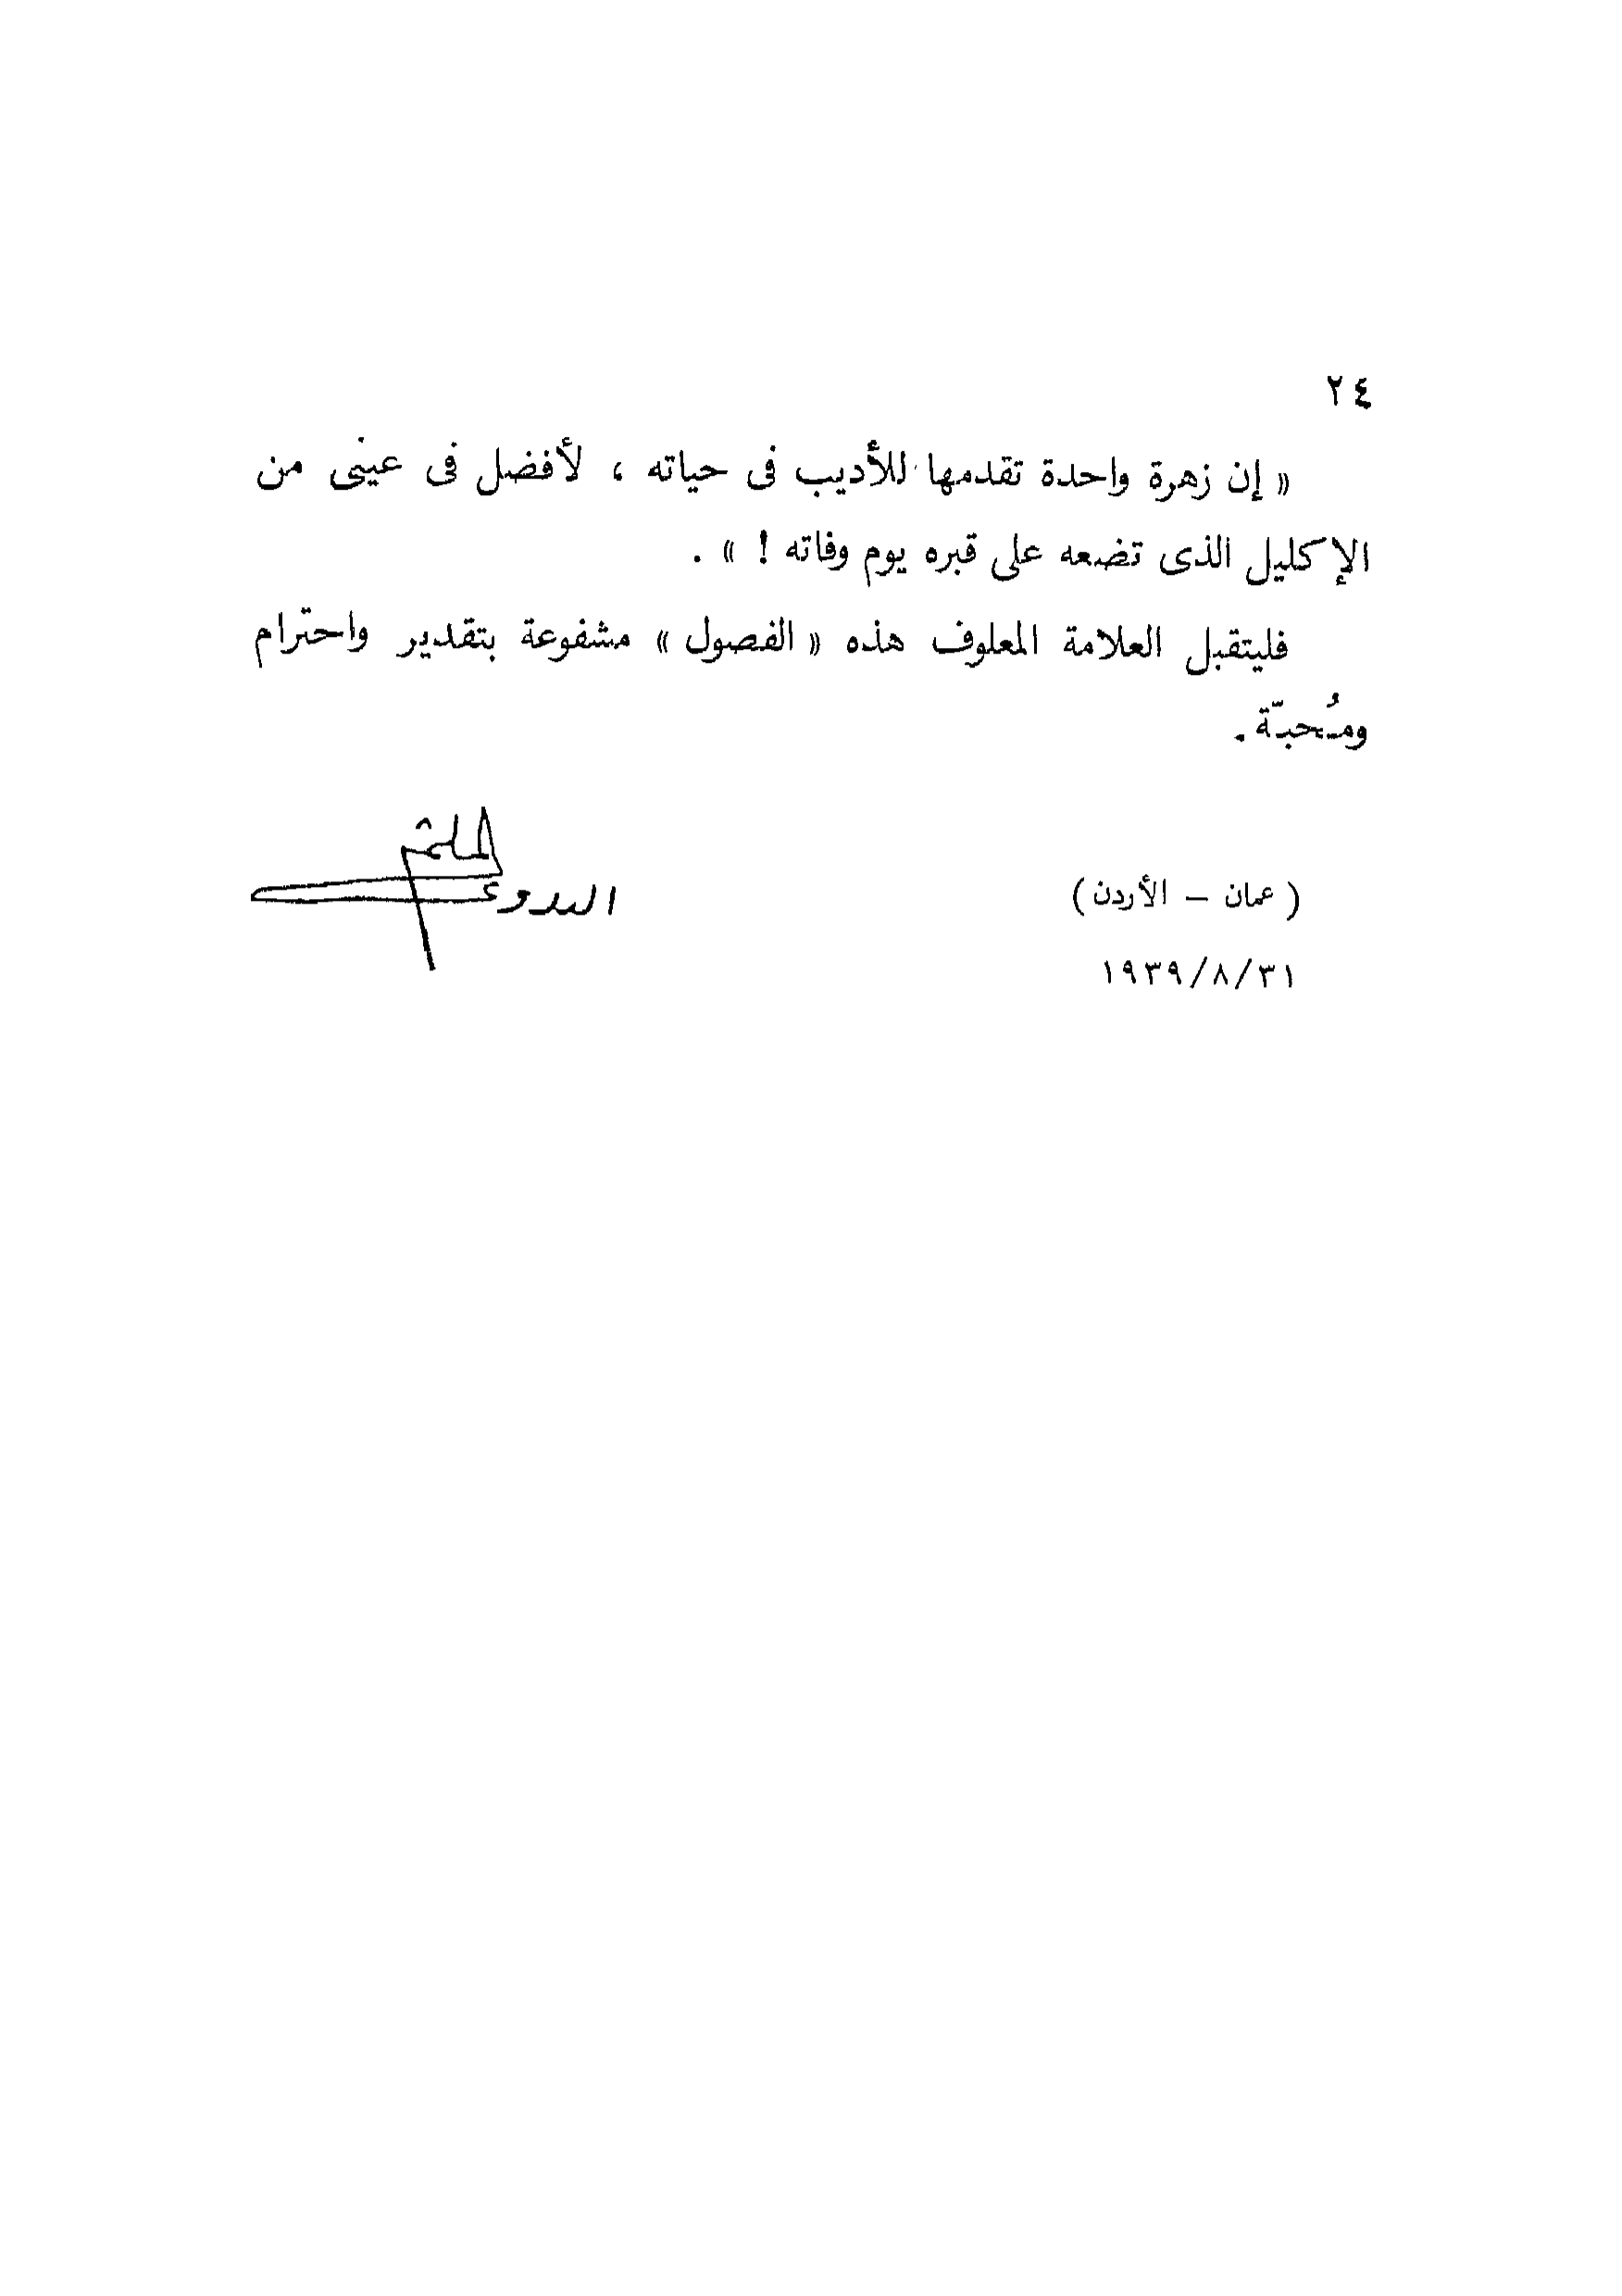 ٢٤
« إن زهرة واحدة تقدمها للأديب فى حياته ، لأفضل فى عينى من
الإكليل الذى تضعه على قبره يوم وفاته ! » .
فليتقبل العلامة المعلوف هذه « الفصول » مشفوعة بتقدير واحترام
ومُحبّة .
( عمان – الأردن )
٣١/٨/١٩٣٩
البدوى
الملثم